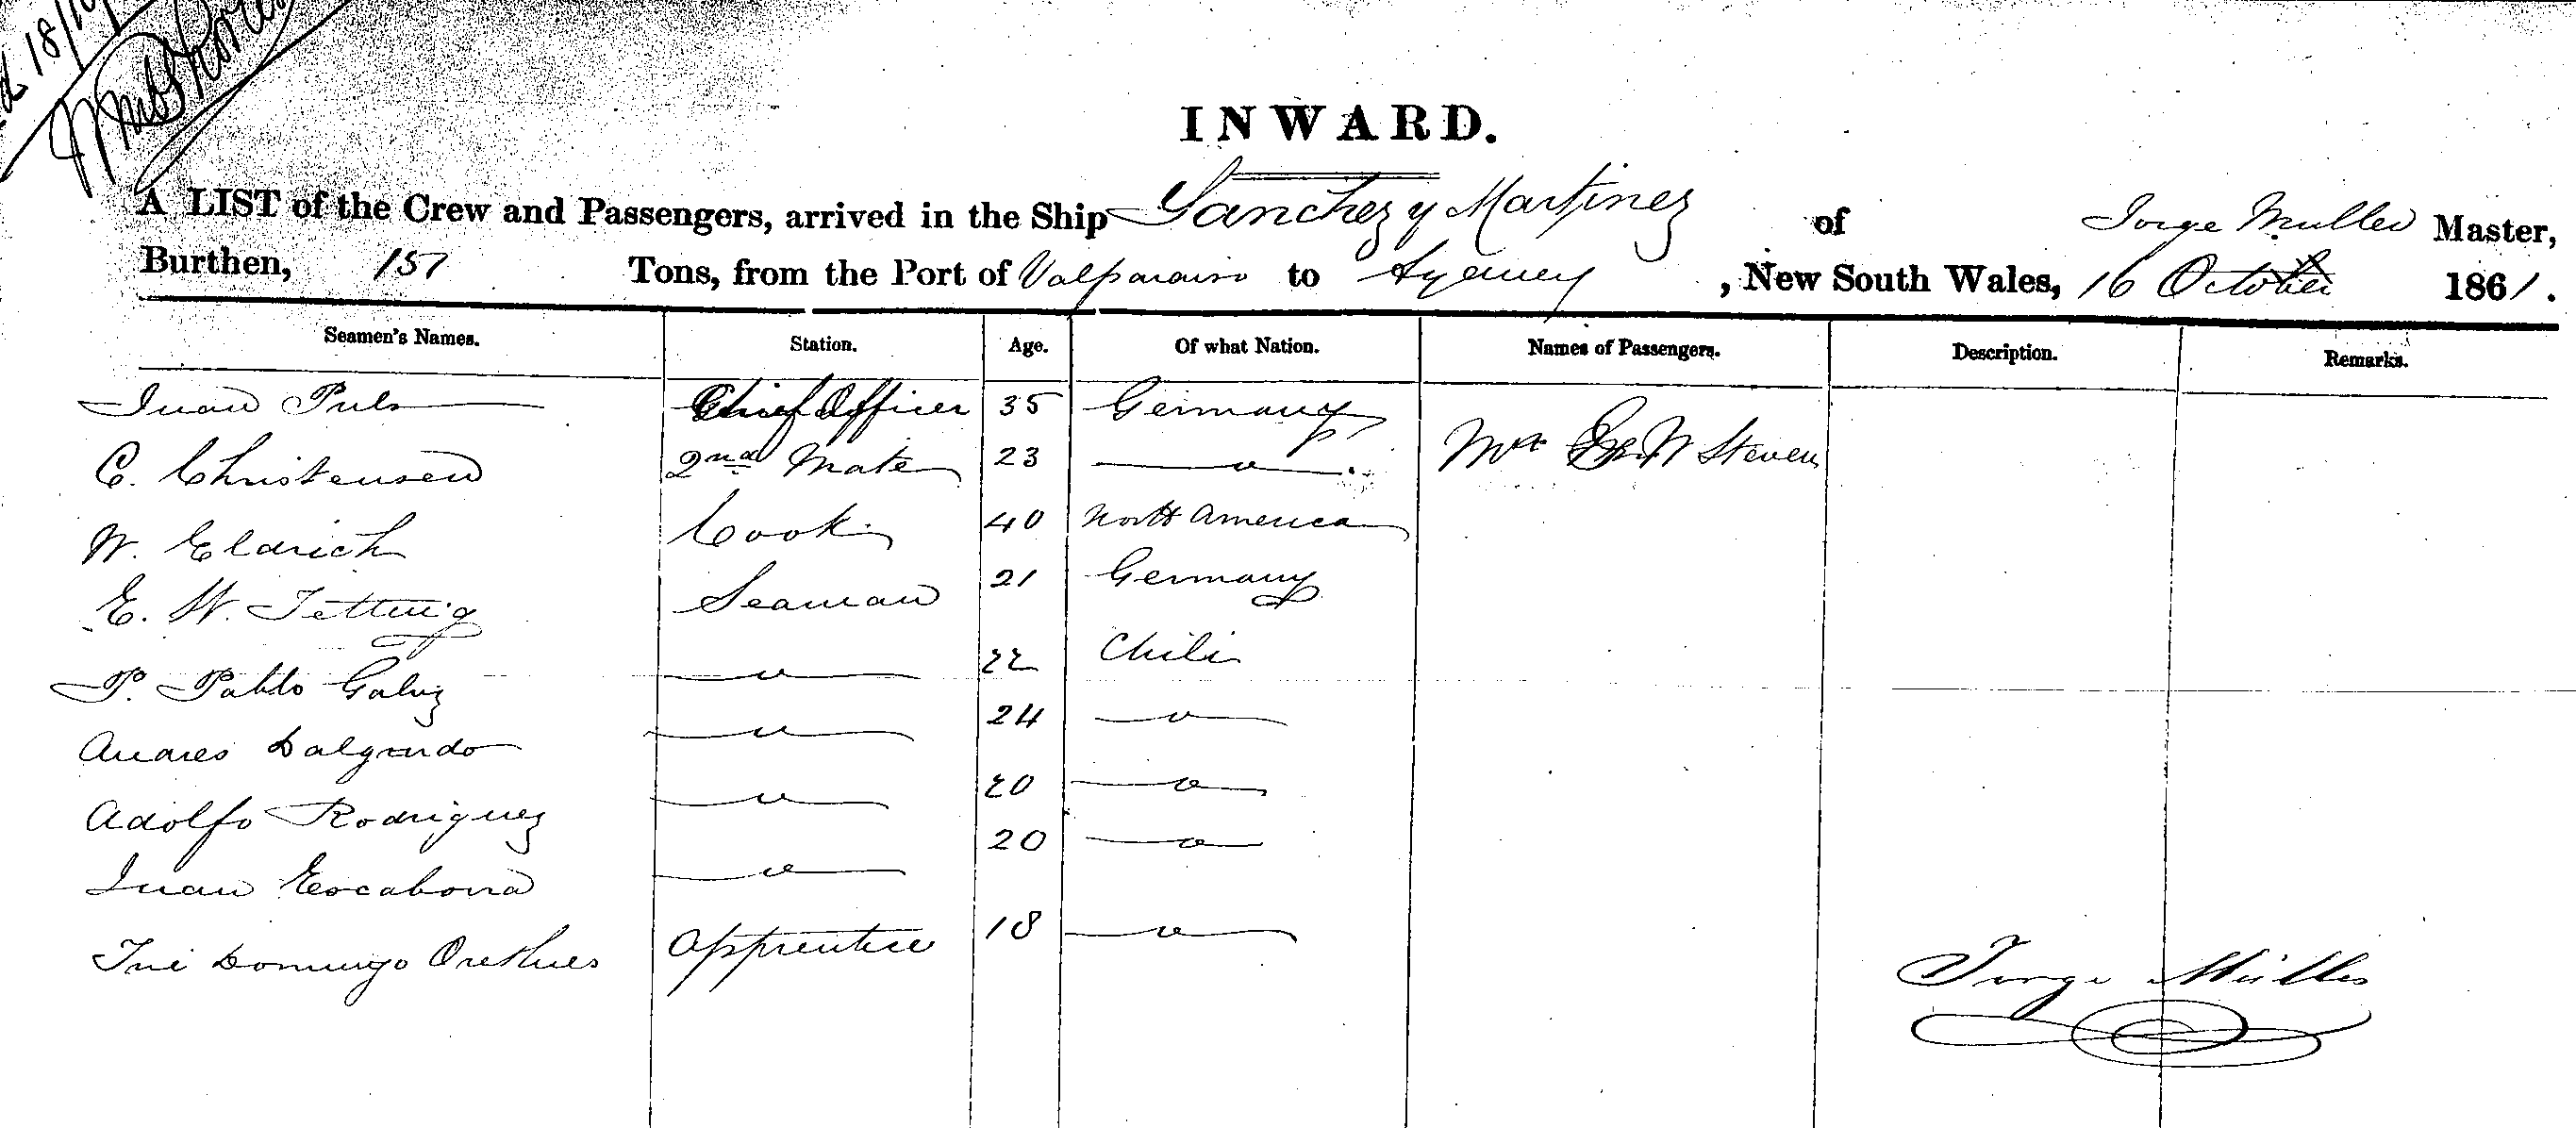 18/10
INWARD.
A LIST of the Crew and Passengers, arrived in the Ship Sanchez y Martinez of Jorge Muller Master,
Burthen, 157 Tons, from the Port of Valparaiso to Sydney, New South Wales, 16 October 1861.
Seamen's Names. Station. Age. Of what Nation. Names of Passengers. Description. Remarks.
Juan Puls Chief Officer 35 Germany
C. Christensen 2nd Mate 23 — " — Mr W Stevens
W. Eldrich Cook 40 North America
E. W. Tettwig Seaman 21 Germany
P. Pablo Galvez — " — 22 Chili
Andres Dalgardo — " — 24 — " —
Adolfo Rodriguez — " — 20 — " —
Juan Escabona — " — 20 — " —
Domingo Apprentice 18 — " —
Jorge Müller